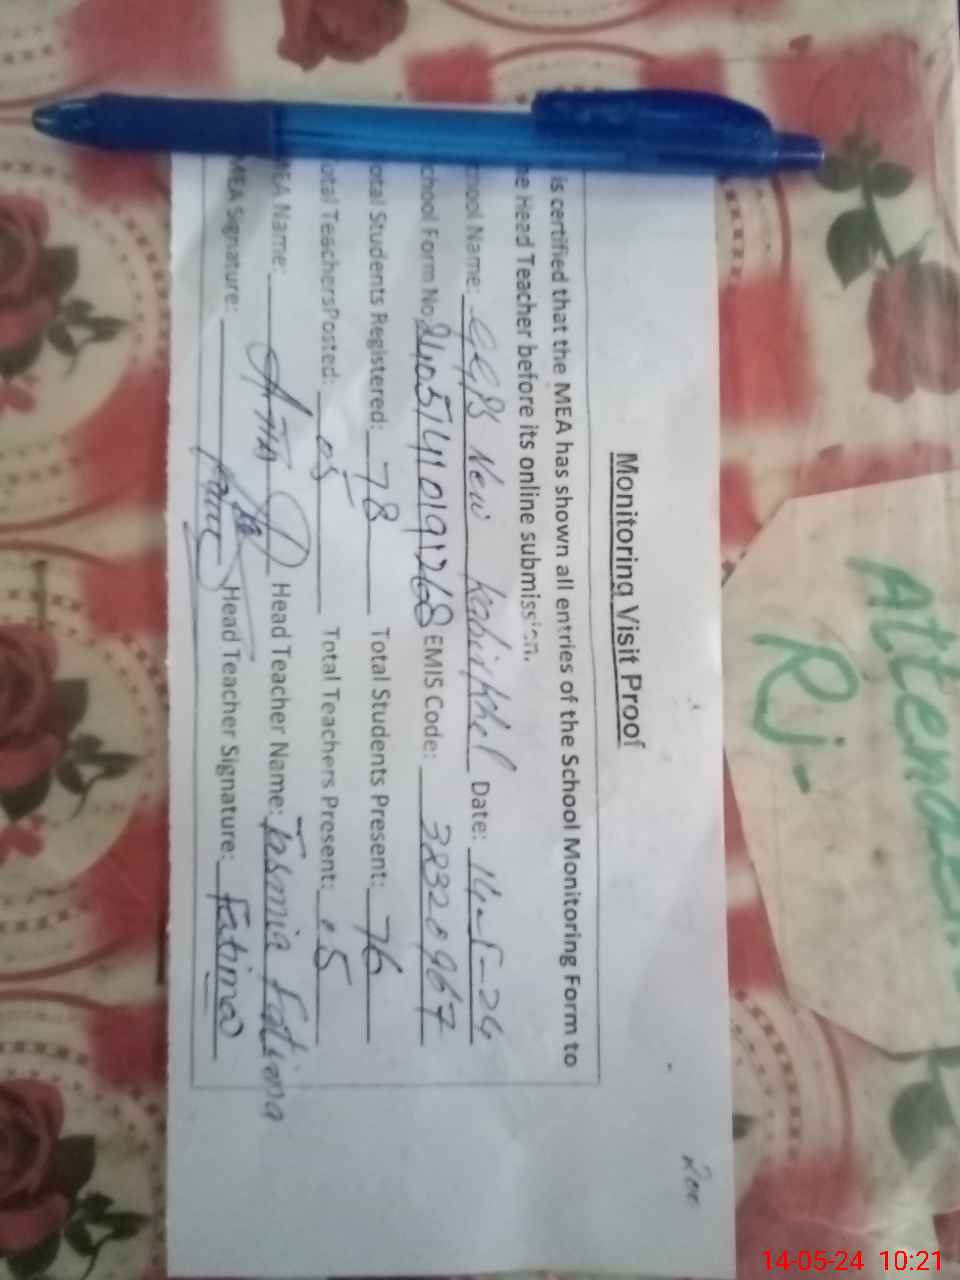 Monitoring Visit Proof
is certified that the MEA has shown all entries of the School Monitoring Form to
he Head Teacher before its online submission.
chool Name: GGPS New Kabirkhel Date: 14-5-24
chool Form No 24051410191268 EMIS Code: 38320967
otal Students Registered: 78 Total Students Present: 76
otal TeachersPosted: 05 Total Teachers Present: 05
MEA Name: Head Teacher Name: Tasmia Fatima
MEA Signature: Head Teacher Signature: Fatima
Rj-
14-05-24 10:21